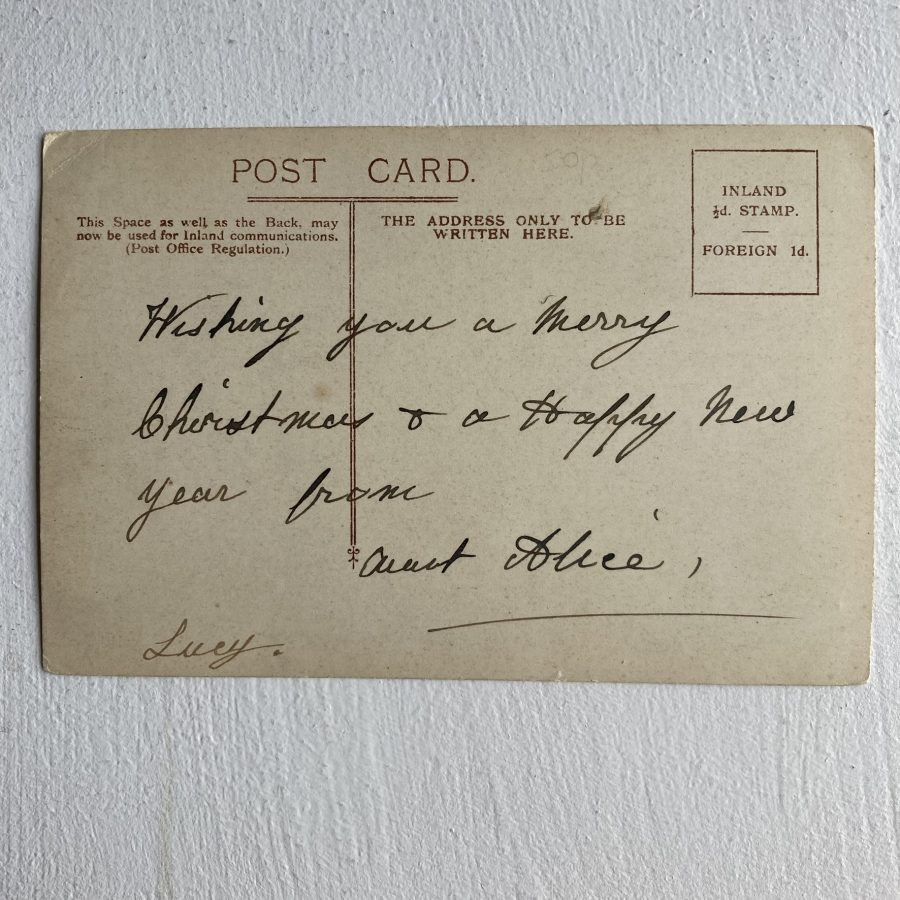 POST CARD.
This Space as well as the Back, may
now be used for Inland communications.
(Post Office Regulation.)
THE ADDRESS ONLY TO BE
WRITTEN HERE.
INLAND
½d. STAMP.
FOREIGN 1d.
Wishing you a Merry
Christmas & a Happy New
Year from
Aunt Alice,
Lucy.